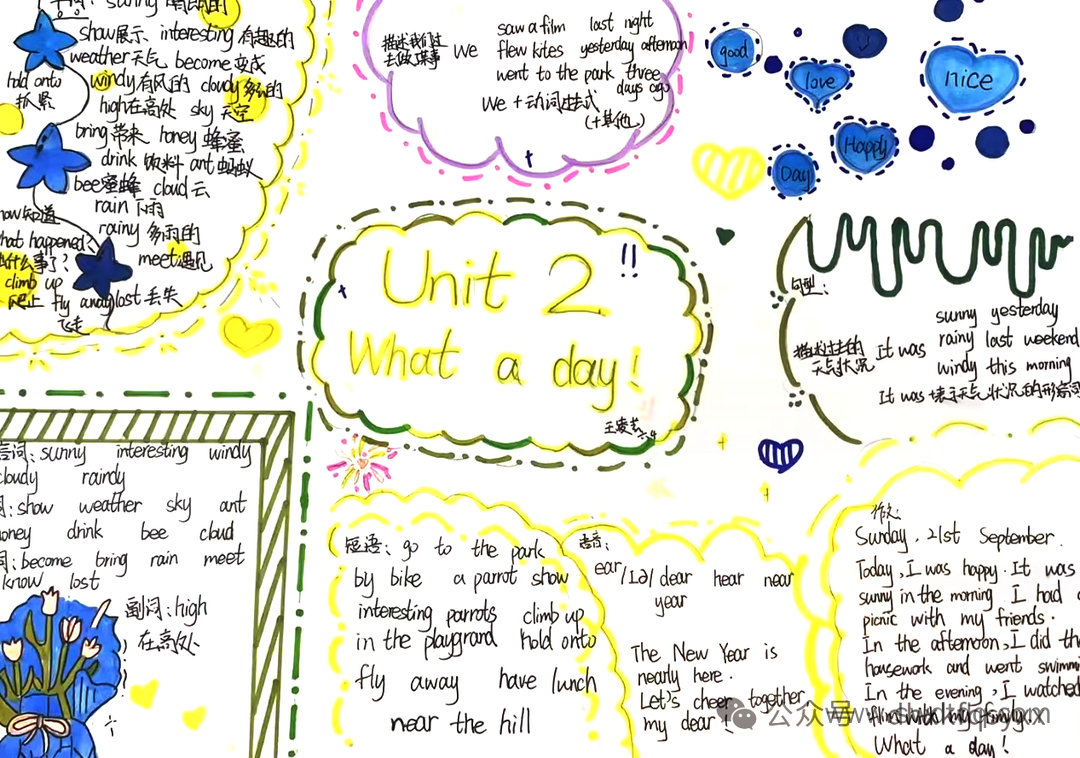 sunny 晴朗的
show展示、interesting 有趣的
weather天气 become变成
hold onto
抓紧
windy有风的 cloudy多云的
high在高处 sky天空
bring带来 honey蜂蜜
drink 饮料 ant蚂蚁
bee蜜蜂 cloud云
know知道
rain下雨
rainy 多雨的
what happened?
什么事了?
meet遇见
climb up
爬上 fly away lost丢失
飞走
描述我们过
去做某事
we
saw a film last night
flew kites yesterday afternoon
went to the park three
days ago
We+动词过去式
(+其他)
good
love
nice
Happy
Day
Unit 2 !!
What a day!
句型:
描述过去的
天气状况
It was
sunny yesterday
rainy last weekend
windy this morning
It was+表示天气状况的形容词
容词: sunny interesting windy
cloudy raindy
词:show weather sky ant
honey drink bee cloud
词:become bring rain meet
know lost
副词:high
在高处
短语: go to the park
by bike a parrot show
interesting parrots climb up
in the playgrand hold onto
fly away have lunch
near the hill
语音:
ear/ɪə/ dear hear near
year
The New Year is
nearly here.
Let's cheer together,
my dear!
作文:
Sunday, 21st September.
Today, I was happy. It was
sunny in the morning. I had a
picnic with my friends.
In the afternoon, I did the
housework and went swimmi
In the evening, I watched
film with my family.
What a day!
公众号